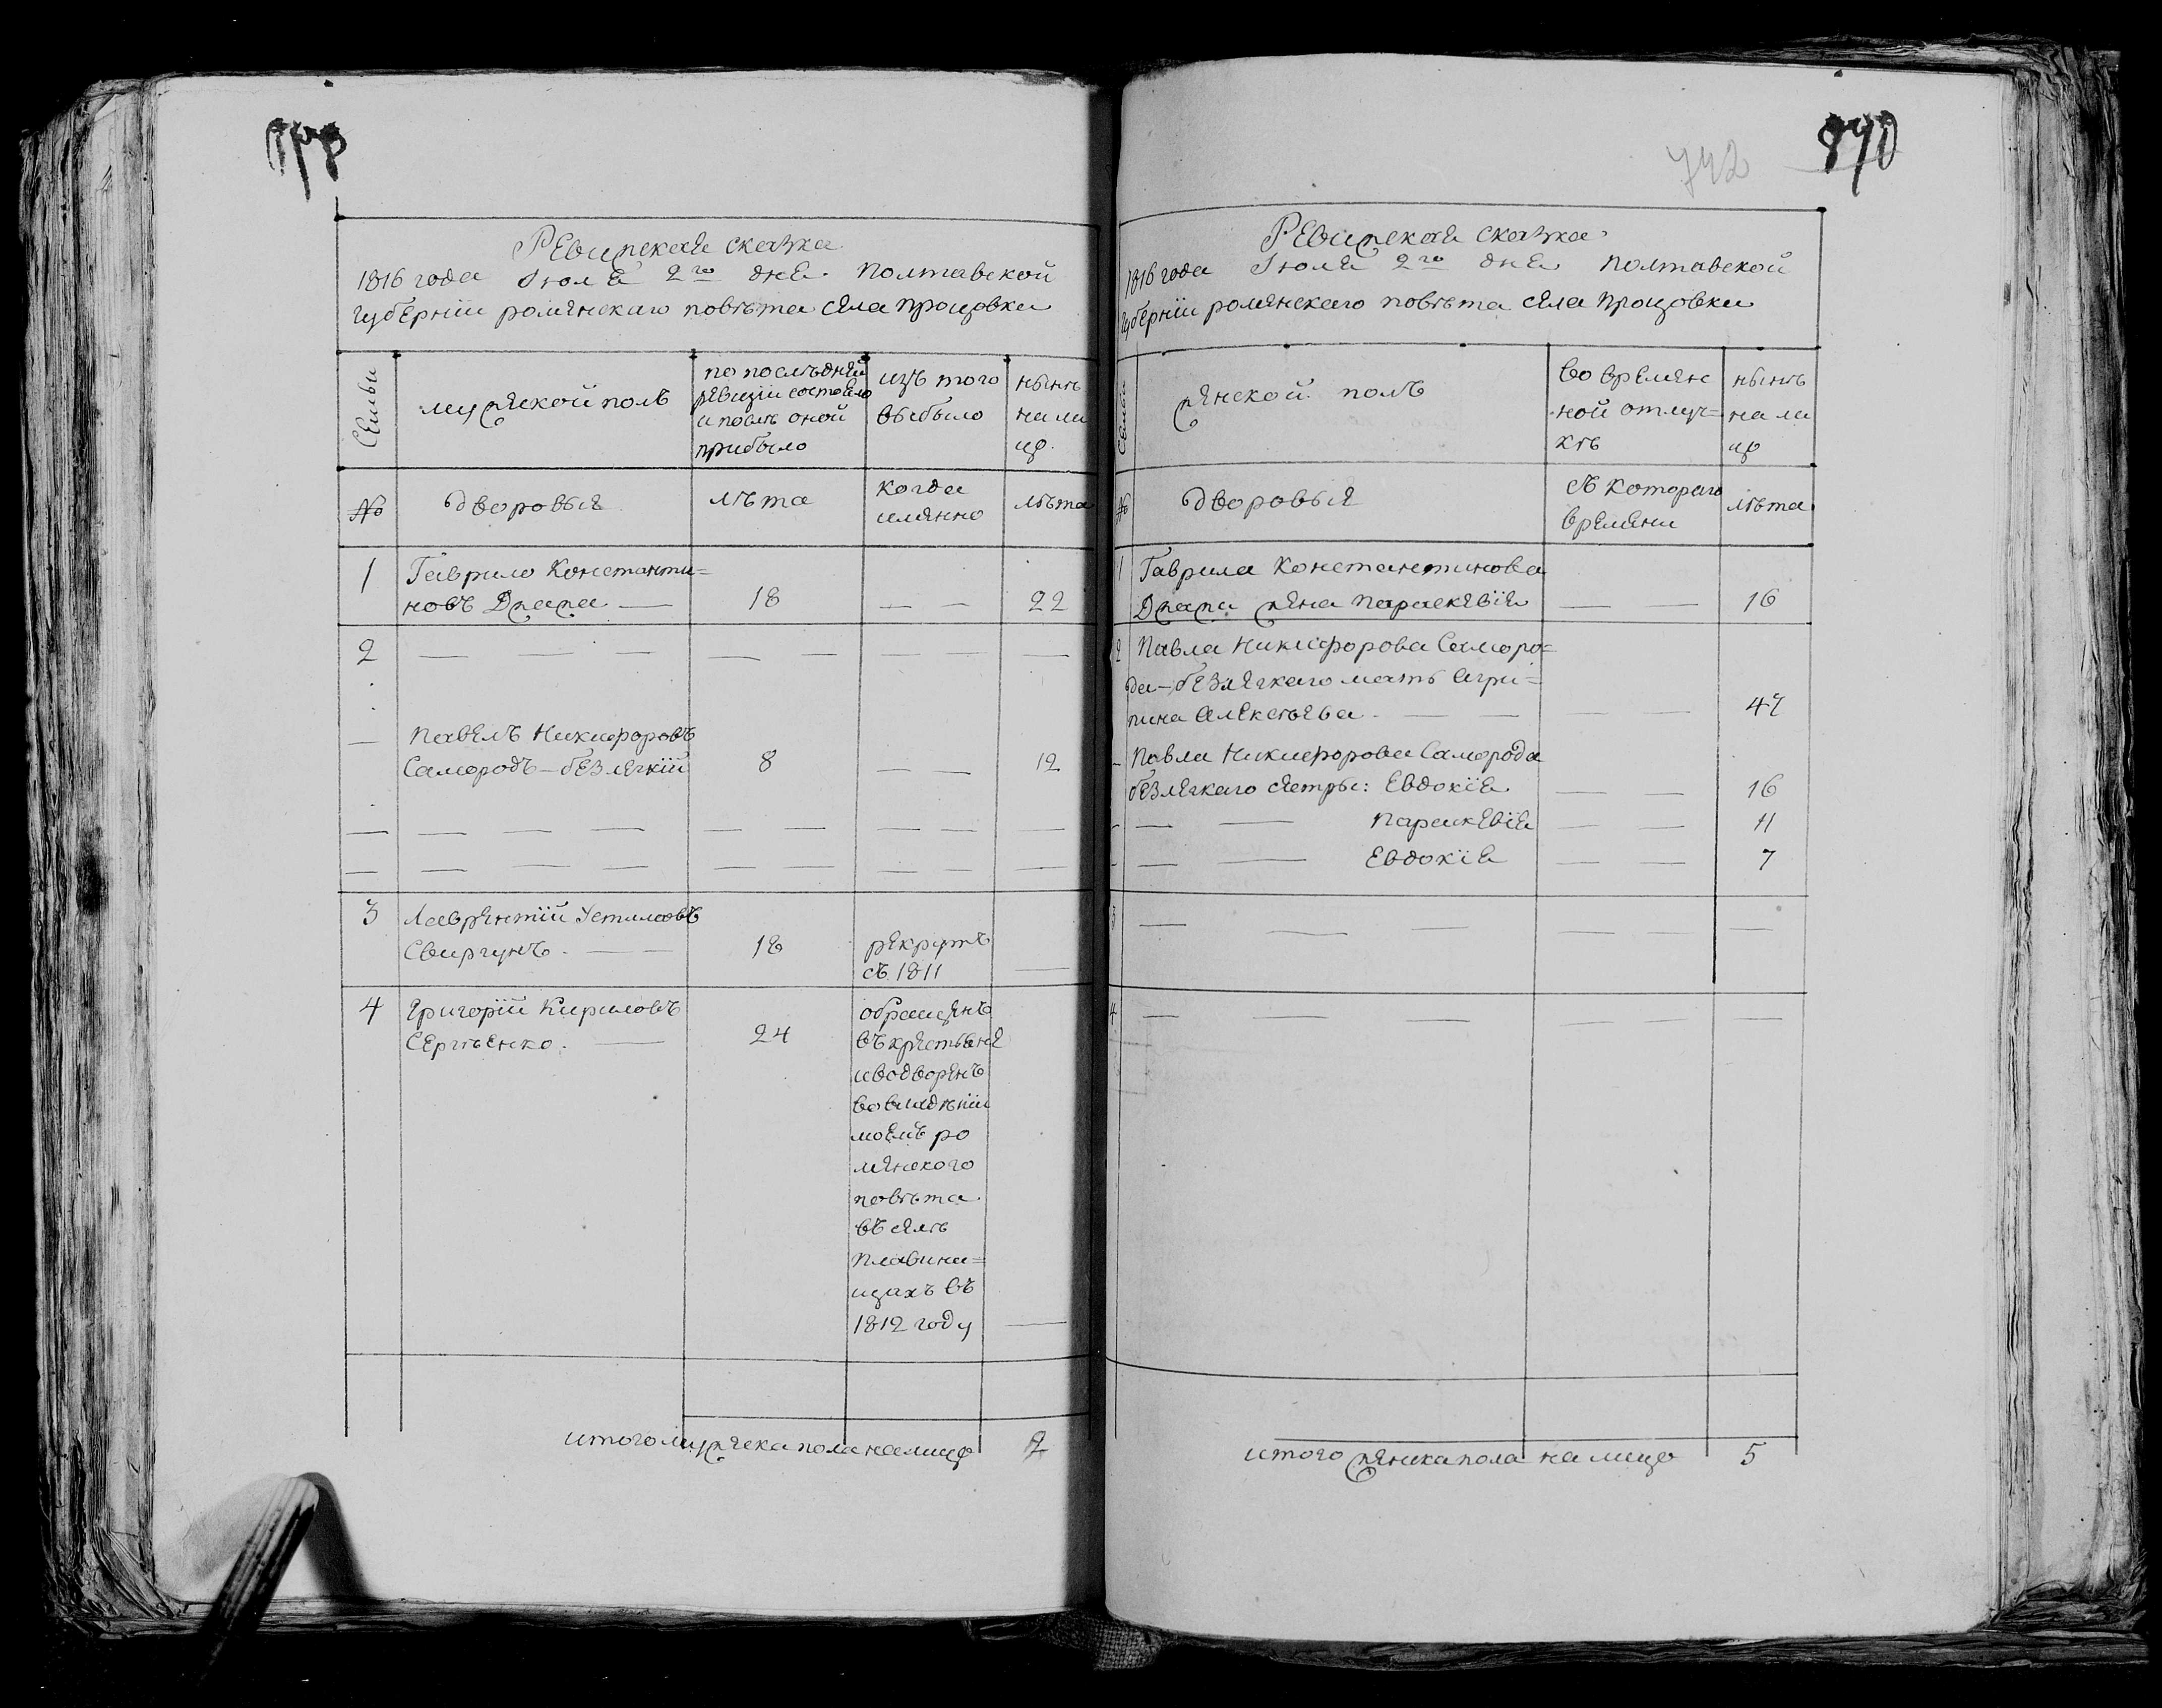 742
840
Ревижская сказка
1816 года Іюля 2го дня Полтавской
губерніи роменскаго повѣта села Процовки
Семьи
мужеской полъ
по послѣдней
ревизіи состояло
и послѣ оной
прибыло
изъ того
выбыло
нынѣ
на ли
цо
№
дворовыя
лѣта
когда
именно
лѣта
1
Гаврило Константи=
новъ Джажа —
18
— —
22
2
— — —
— —
— — —
—
—
Павелъ Никифоровъ
Самородъ-безлегкій
8
— —
12
— — — — — — — — —
— — — — — — — — —
3
Лаврентій Устимовъ
Свиргунъ. —
18
рекрутъ
съ 1811
—
4
Григорій Кириловъ
Сергѣенко. —
24
обращенъ
въ крестьяне
и водворенъ
во владѣніи
моемъ ро
менского
повѣта
въ селѣ
Плавини=
щахъ въ
1812 году
—
итого мужеска пола налицо
2
Ревижская сказка
1816 года Іюля 2го дня Полтавской
губерніи роменскаго повѣта села Процовки
Семьи
женской полъ
во времен
ной отлуч=
кѣ
нынѣ
на ли
цо
№
дворовыя
съ котораго
времени
лѣта
1
Гаврила Константинова
Джажи жена Параскевія
— —
16
2
Павла Никифорова Саморо=
да-безлегкаго мать Агри=
пина Алексѣева. — —
— —
47
— Павла Никифорова Самарода
безлегкаго сестры: Евдокія
— —
16
— — — Параскевія
— —
11
— — — Евдокія
— —
7
3
— — — — — —
4
— — — — — — —
итого женска пола на лицо
5